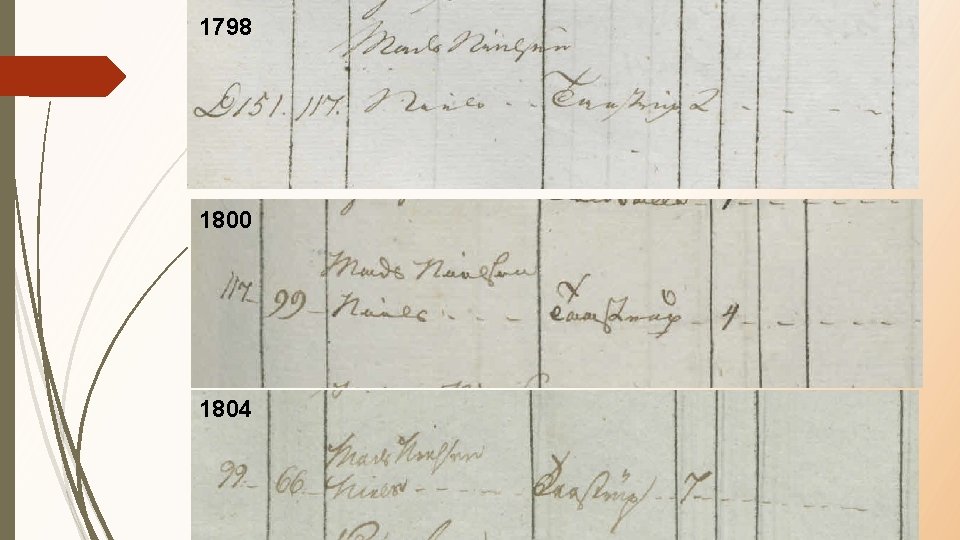 1798
Mads Nielsen
151. 117. Niels - - Taastrup 2 - - - -
1800
Mads Nielsen
117 99 Niels - - - Taastrup 4 - - - - -
1804
Mads Nielsen
99 66 Niels - - - - Taastrup 7 - - - -